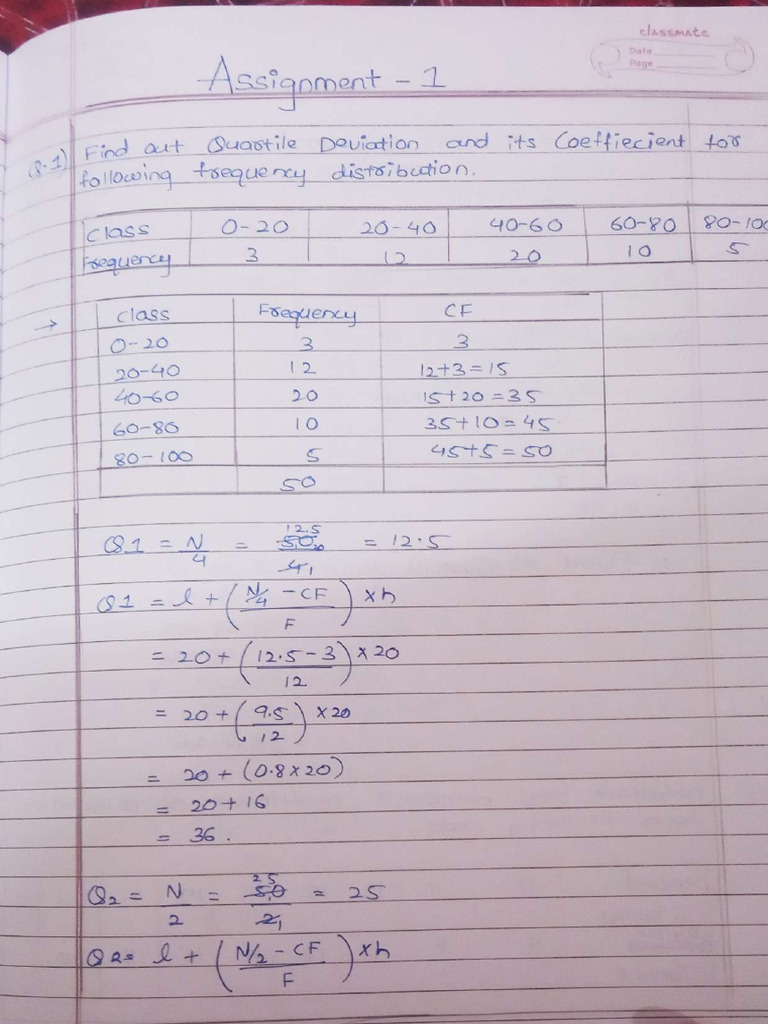 classmate
Date
Page
Assignment - 1
Q.1) Find out Quartile Deviation and its Coeffiecient for
following frequency distribution.
Class 0-20 20-40 40-60 60-80 80-100
Frequency 3 12 20 10 5
→ Class Frequency CF
0-20 3 3
20-40 12 12+3=15
40-60 20 15+20=35
60-80 10 35+10=45
80-100 5 45+5=50
50
Q1 = N/4 = 50/4 = 12.5
Q1 = l + (N/4 - CF / F) × h
= 20 + (12.5-3 / 12) × 20
= 20 + (9.5 / 12) × 20
= 20 + (0.8×20)
= 20+16
= 36.
Q2 = N/2 = 50/2 = 25
Q2= l + (N/2 - CF / F) × h